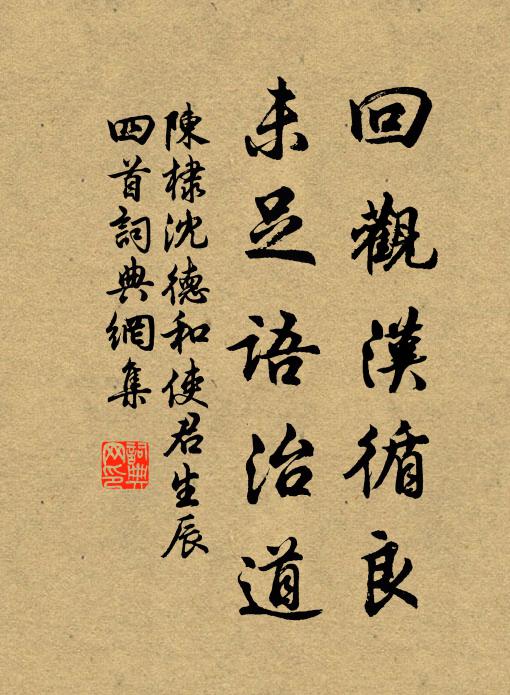 回觀漢循良
未足語治道
陳棣沈德和使君生辰
四首詞典網集
詞典网印